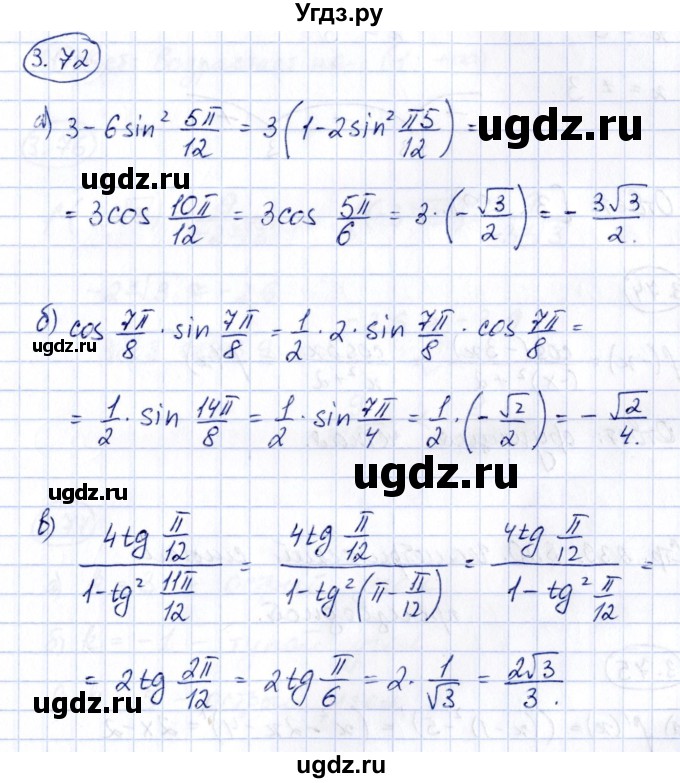 Угдз.ру
3.72
а) 3 - 6 sin² 5π/12 = 3 (1 - 2 sin² π5/12) =
ugdz.ru
= 3 cos 10π/12 = 3 cos 5π/6 = 3 · (- √3/2) = - 3√3/2.
ugdz.ru
б) cos 7π/8 · sin 7π/8 = 1/2 · 2 · sin 7π/8 · cos 7π/8 =
ugdz.ru
= 1/2 · sin 14π/8 = 1/2 · sin 7π/4 = 1/2 · (- √2/2) = - √2/4.
ugdz.ru
ugdz.ru
в) (4 tg π/12)/(1 - tg² 11π/12) = (4 tg π/12)/(1 - tg² (π - π/12)) = (4 tg π/12)/(1 - tg² π/12) =
ugdz.ru
= 2 tg 2π/12 = 2 tg π/6 = 2 · 1/√3 = 2√3/3.
ugdz.ru
ugdz.ru